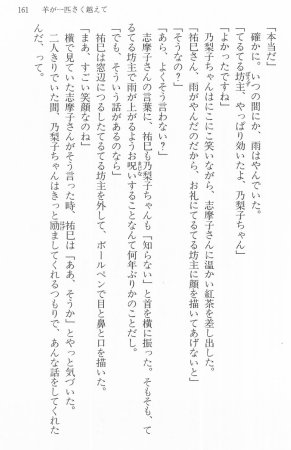 161　羊が一匹さく越えて
「本当だ」
確かに。いつの間にか、雨はやんでいた。
「てるてる坊主、やっぱり効いたよ、乃梨子ちゃん」
「よかったですね」
乃梨子ちゃんはにこにこ笑いながら、志摩子さんに温かい紅茶を差し出した。
「祐巳さん、雨がやんだのだから、お礼にてるてる坊主に顔を描いてあげないと」
「そうなの?」
「あら、よくそう言わない?」
志摩子さんの言葉に、祐巳も乃梨子ちゃんも「知らない」と首を横に振った。そもそも、て
るてる坊主で雨が上がるようお呪いすることなんて何年ぶりかのことだし。
「でも、そういう話があるのなら」
祐巳は窓辺につるしたてるてる坊主を外して、ボールペンで目と鼻と口を描いた。
「まあ、すごい笑顔なのね」
横で見ていた志摩子さんがそう言った時、祐巳は「ああ、そうか」とやっと気づいた。
二人きりでいた間、乃梨子ちゃんはきっと励ましてくれるつもりで、あんな話をしてくれた
んだ、って。